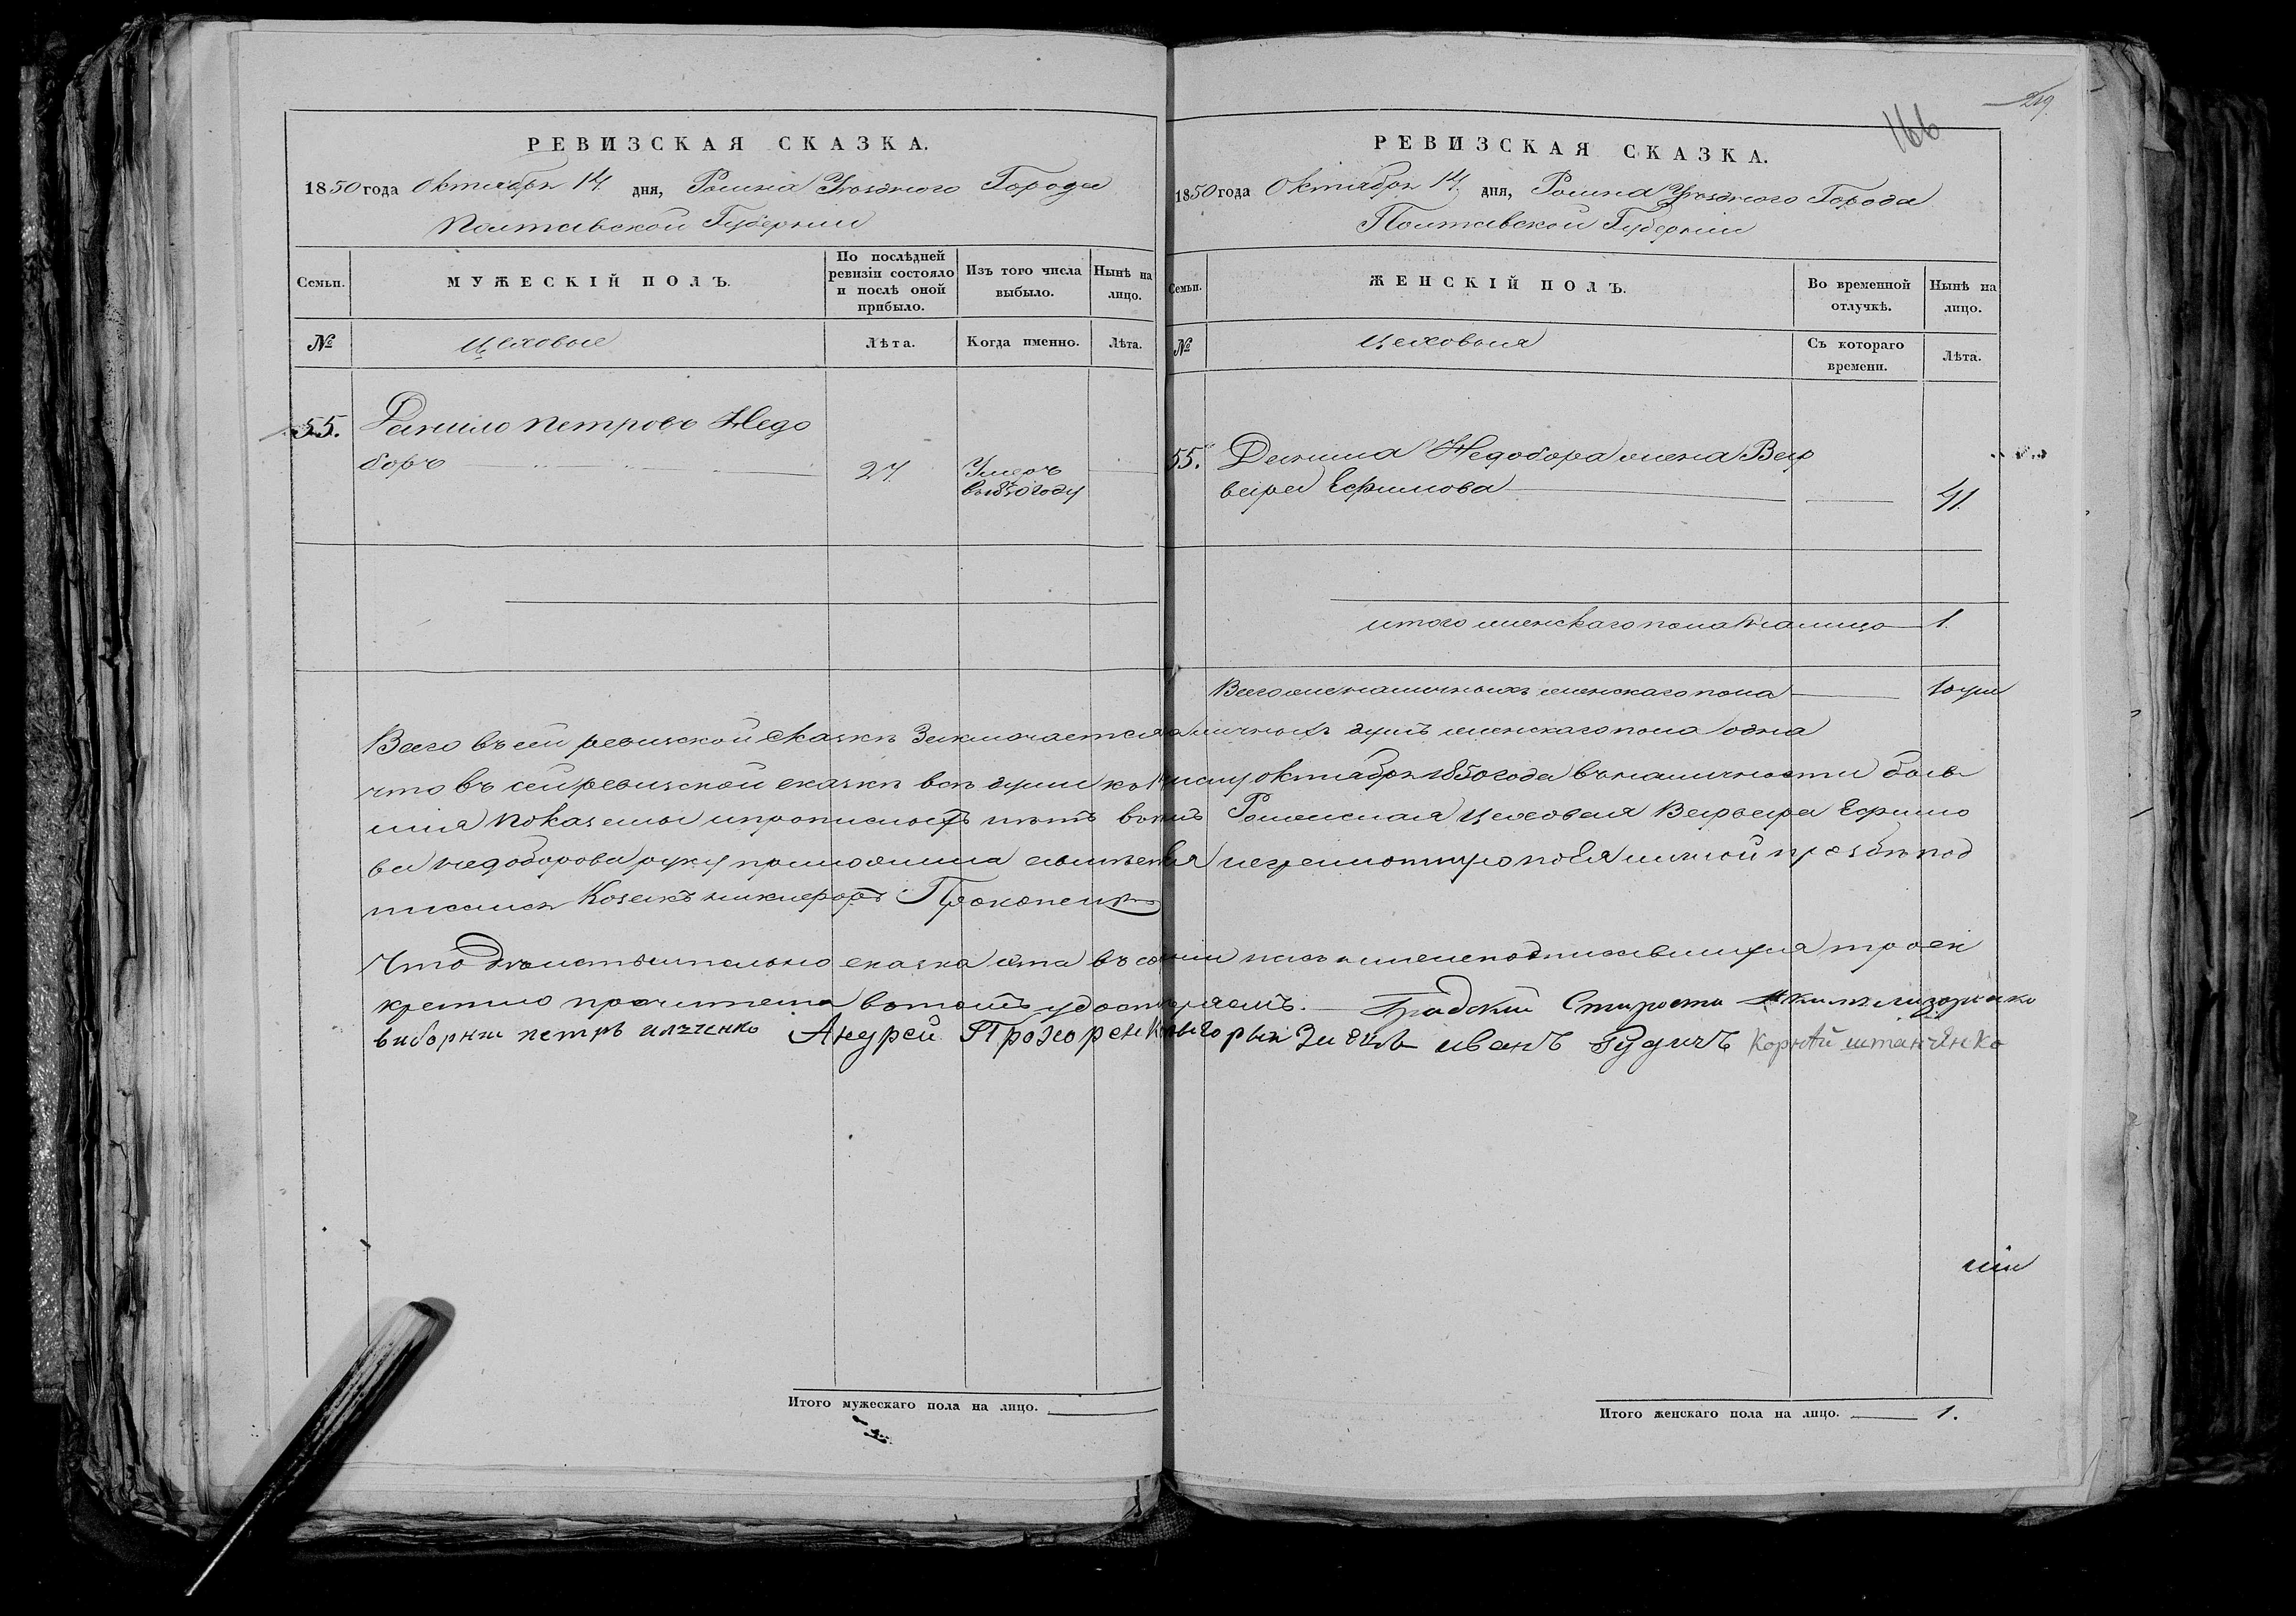 РЕВИЗСКАЯ СКАЗКА.
1850 года Октября 14. дня, Ромна Уѣзднаго Города
Полтавской Губерніи
Семьи.
МУЖЕСКІЙ ПОЛЪ.
По послѣдней ревизіи состояло и послѣ оной прибыло.
Изъ того числа выбыло.
Нынѣ на лицо.
№
Цеховые
Лѣта.
Когда именно.
Лѣта.
55.
Данило Петровъ Недо
боръ
27.
Умеръ
въ 1850 году
Итого мужескаго пола на лицо.
219.
166
РЕВИЗСКАЯ СКАЗКА.
1850 года Октября 14. дня, Ромна Уѣзднаго Города
Полтавской Губерніи
Семьи.
ЖЕНСКІЙ ПОЛЪ.
Во временной отлучкѣ.
Нынѣ на лицо.
№
Цеховыя
Съ котораго времени.
Лѣта.
55.
Данила Недобора жена Вар
вара Ефимова
41.
итого женскаго пола на лицо 1.
Всего же наличныхъ женскаго пола 1 душа
Всего въ сей ревизской сказкѣ Заключается наличныхъ душъ женскаго пола одна
что въ сей ревизской сказкѣ всѣ души къ числу октября 1850 года въ наличности быв
шія показаны и прописныхъ нѣтъ въ томъ Роменская цеховая Варвара Ефимо
ва Недоборова руку приложила а вмѣсто ея неграмотную по ея личной прозбѣ под
писался Козакъ Никифоръ Прокопенко
Что дѣйствительно сказка эта въ собраніи насъ нижеподписавшихся
прочитана въ томъ удостовѣряемъ. Градскій Староста
виборни петръ илченко Андрей Прохоренко виборни Заецъ иванъ Рудичъ Корнѣй штанченко
Итого женскаго пола на лицо. 1.